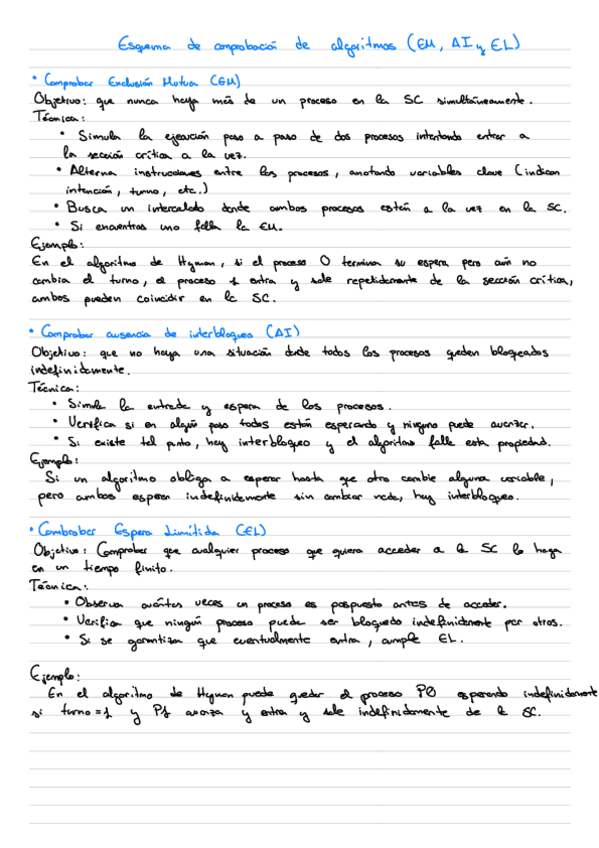 Esquema de comprobación de algoritmos (EM, AI y EL)
• Comprobar Exclusión Mutua (EM)
Objetivo: que nunca haya más de un proceso en la SC simultáneamente.
Técnica:
• Simula la ejecución paso a paso de dos procesos intentando entrar a
la sección crítica a la vez.
• Alterna instrucciones entre los procesos, anotando variables clave (indican
intención, turno, etc.)
• Busca un intercalado donde ambos procesos estén a la vez en la SC.
• Si encuentras uno falla la EM.
Ejemplo:
En el algoritmo de Hyman, si el proceso 0 termina su espera pero aún no
cambia el turno, el proceso 1 entra y sale repetidamente de la sección crítica,
ambos pueden coincidir en la SC.
• Comprobar ausencia de interbloqueo (AI)
Objetivo: que no haya una situación donde todos los procesos queden bloqueados
indefinidamente.
Técnica:
• Simula la entrada y espera de los procesos.
• Verifica si en algún paso todos están esperando y ninguno puede avanzar.
• Si existe tal punto, hay interbloqueo y el algoritmo falla esta propiedad.
Ejemplo:
Si un algoritmo obliga a esperar hasta que otro cambie alguna variable,
pero ambos esperan indefinidamente sin cambiar nada, hay interbloqueo.
• Combrobar Espera Limitida (EL)
Objetivo: Comprobar que cualquier proceso que quiera acceder a la SC lo haga
en un tiempo finito.
Técnica:
• Observa cuántas veces un proceso es pospuesto antes de acceder.
• Verifica que ningún proceso puede ser bloqueado indefinidamente por otros.
• Si se garantiza que eventualmente entra, cumple EL.
Ejemplo:
En el algoritmo de Hyman puede quedar el proceso P0 esperando indefinidamente
si turno=1 y P1 avanza y entra y sale indefinidamente de la SC.